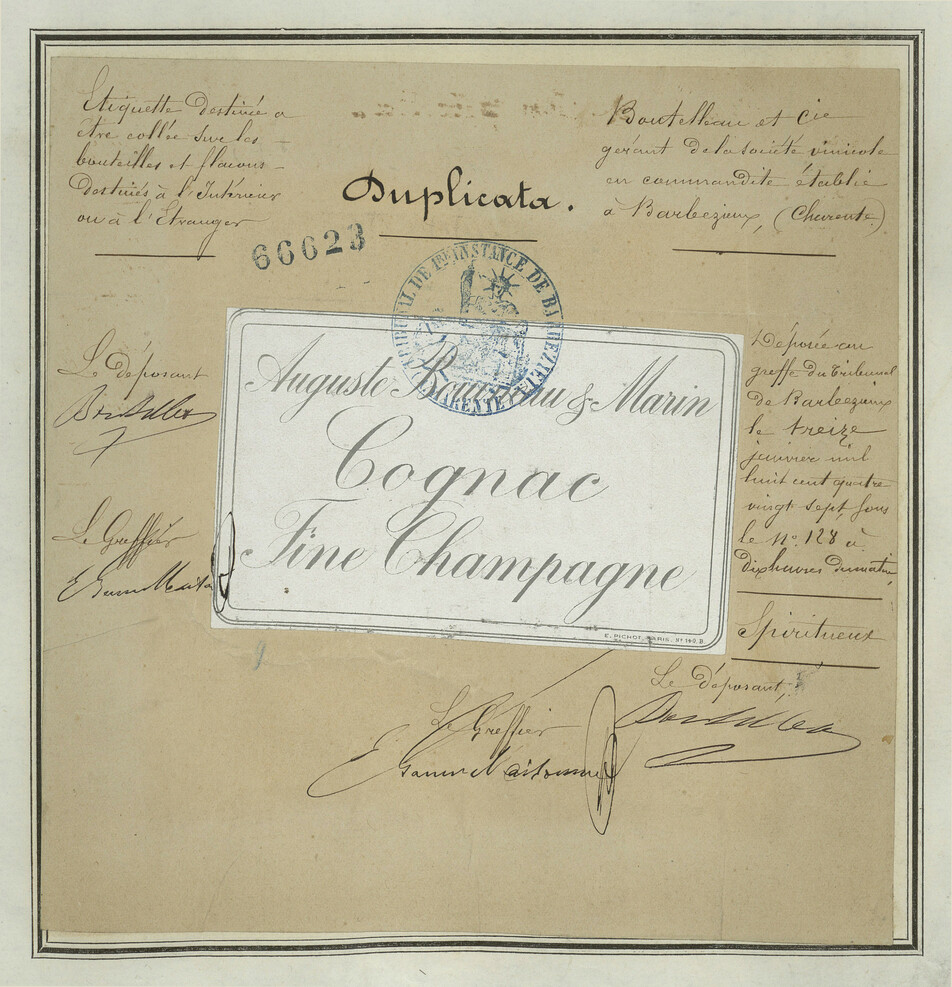 Etiquette destinée a
être collée sur les
bouteilles et flacons
destinés à l'Intérieur
ou à l'Etranger
Duplicata.
Boutelleau et Cie
gérant de la société vinicole
en commandite établie
à Barbezieux, (Charente)
66623
TRIBUNAL DE 1RE INSTANCE DE BARBEZIEUX
CHARENTE
Auguste & Marin
Cognac
Fine Champagne
E. PICHOT, PARIS. Nº 140. D.
Le déposant
Boutelleau
Le Greffier
Déposée au
greffe du Tribunal
de Barbezieux
le treize
janvier mil
huit cent quatre
vingt sept, sous
le Nº. 128 à
dix heures du matin,
Spiritueux
Le déposant,
Boutelleau
Le Greffier